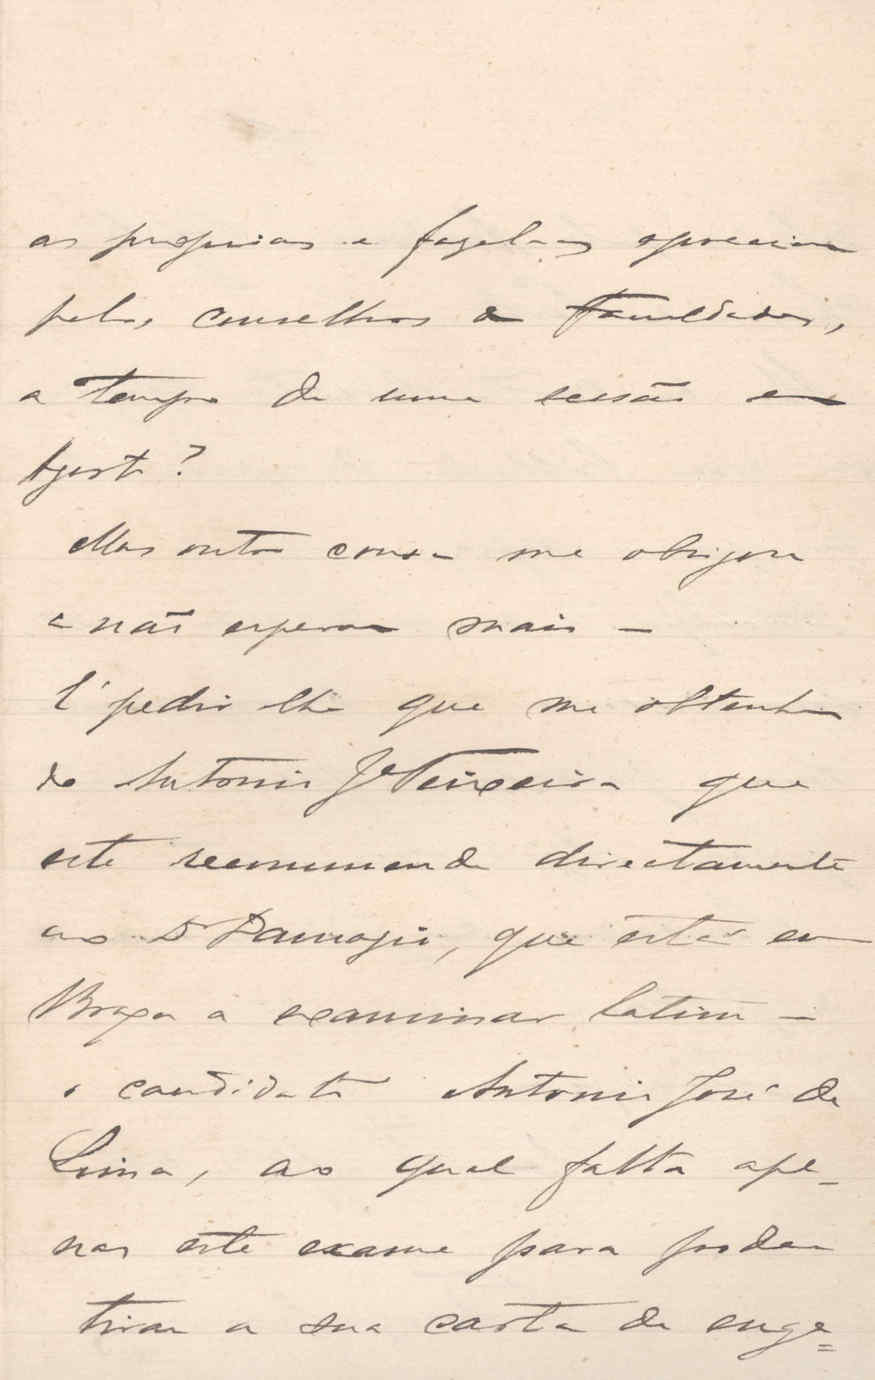 as proprias e fazel-as apreciar
pelos conselhos de Faculdades,
a tempo de uma sessão em
Agosto?
Mas outra cousa me obrigou
a não esperar mais –
É pedir lhe que me obtenha
do Antonio Jé Teixeira que
este recommende directamente
ao Dr Damazio, que está em
Braga a examinar latim –
o candidato Antonio José de
Lima, ao qual falta ape-
nas este exame para poder
tirar a sua carta de enge=